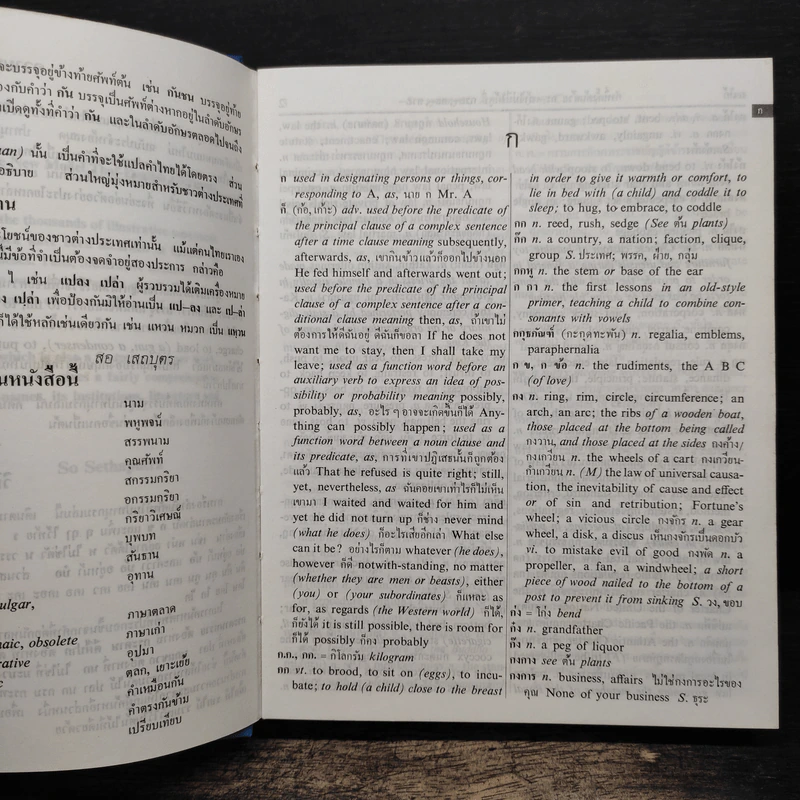 จะบรรจุอยู่ข้างท้ายศัพท์ต้น เช่น กันชน บรรจุอยู่ท้าย
องกับคำว่า กัน บรรจุเป็นศัพท์ต่างหากอยู่ในลำดับอักษร
เปิดดูทั้งที่คำว่า กัน และในลำดับอักษรตลอดไปจนถึง
an) นั้น เป็นคำที่จะใช้แปลคำไทยได้โดยตรง ส่วน
อธิบาย ส่วนใหญ่มุ่งหมายสำหรับชาวต่างประเทศที่
าน
ะโยชน์ของชาวต่างประเทศเท่านั้น แม้แต่คนไทยเราเอง
มีข้อที่จำเป็นต้องจดจำอยู่สองประการ กล่าวคือ
ๅ เช่น แปลง เปล่า ผู้รวบรวมได้เติมเครื่องหมาย
ลง เปล่า เพื่อป้องกันมิให้อ่านเป็น แป—ลง และ เป—ล่า
ก็ได้ใช้หลักเช่นเดียวกัน เช่น แหวน หมวก เป็น แหฺวน
สอ เสถบุตร
นหนังสือนี้
นาม
พหูพจน์
สรรพนาม
คุณศัพท์
สกรรมกริยา
อกรรมกริยา
กริยาวิเศษณ์
บุพบท
สันธาน
อุทาน
ulgar,
ภาษาตลาด
naic, obsolete
ภาษาเก่า
rative
อุปมา
ตลก, เยาะเย้ย
คำเหมือนกัน
คำตรงกันข้าม
เปรียบเทียบ
ก
ก
ก used in designating persons or things, cor-
responding to A, as, นาย ก Mr. A
ก็ (ก้อ,เก้าะ) adv. used before the predicate of
the principal clause of a complex sentence
after a time clause meaning subsequently,
afterwards, as, เขากินข้าวแล้วก็ออกไปข้างนอก
He fed himself and afterwards went out;
used before the predicate of the principal
clause of a complex sentence after a con-
ditional clause meaning then, as, ถ้าเขาไม่
ต้องการให้ดีฉันอยู่ ดีฉันก็ขอลา If he does not
want me to stay, then I shall take my
leave; used as a function word before an
auxiliary verb to express an idea of pos-
sibility or probability meaning possibly,
probably, as, อะไร ๆ อาจจะเกิดขึ้นก็ได้ Any-
thing can possibly happen; used as a
function word between a noun clause and
its predicate, as, การที่เขาปฏิเสธนั้นก็ถูกต้อง
แล้ว That he refused is quite right; still,
yet, nevertheless, as ฉันคอยเขาเท่าไรก็ไม่เห็น
เขามา I waited and waited for him and
yet he did not turn up ก็ช่าง never mind
(what he does) ก็อะไรเสียอีกเล่า What else
can it be? อย่างไรก็ตาม whatever (he does),
however ก็ดี notwith-standing, no matter
(whether they are men or beasts), either
(you) or (your subordinates) ก็แหละ as
for, as regards (the Western world) ก็ได้,
ก็ยังได้ it is still possible, there is room for
ก็ได้ possibly ก็คง probably
ก.ก., กก. = กิโลกรัม kilogram
กก vt. to brood, to sit on (eggs), to incu-
bate; to hold (a child) close to the breast
in order to give it warmth or comfort, to
lie in bed with (a child) and coddle it to
sleep; to hug, to embrace, to coddle
กก n. reed, rush, sedge (See ต้น plants)
ก๊ก n. a country, a nation; faction, clique,
group S. ประเทศ; พรรค, ฝ่าย, กลุ่ม
กกหู n. the stem or base of the ear
ก กา n. the first lessons in an old-style
primer, teaching a child to combine con-
sonants with vowels
กกุธภัณฑ์ (กะกุดทะพัน) n. regalia, emblems,
paraphernalia
ก ข, ก ข้อ n. the rudiments, the A B C
(of love)
กง n. ring, rim, circle, circumference; an
arch, an arc; the ribs of a wooden boat,
those placed at the bottom being called
กงวาน, and those placed at the sides กงค้าง/
กงเกวียน n. the wheels of a cart กงเกวียน-
กำเกวียน n. (M) the law of universal causa-
tion, the inevitability of cause and effect
or of sin and retribution; Fortune's
wheel; a vicious circle กงจักร n. a gear
wheel, a disk, a discus เห็นกงจักรเป็นดอกบัว
vi. to mistake evil of good กงพัด n. a
propeller, a fan, a windwheel; a short
piece of wood nailed to the bottom of a
post to prevent it from sinking S. วง, ขอบ
ก่ง = โก่ง bend
ก๋ง n. grandfather
ก๊ง n. a peg of liquor
กงกาง see ต้น plants
กงการ n. business, affairs ไม่ใช่กงการอะไรของ
คุณ None of your business S. ธุระ